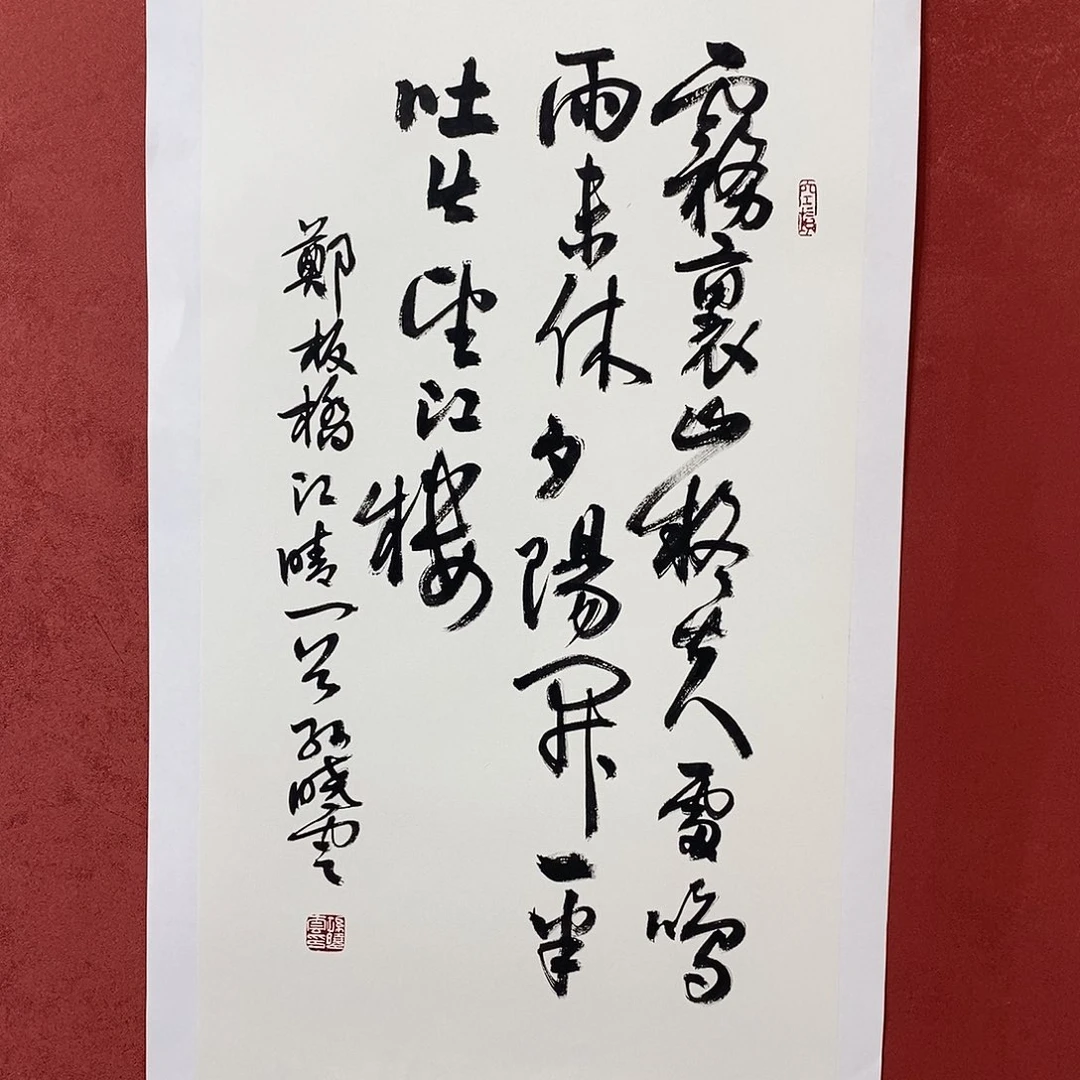 霧裏山疑失雷鳴
雨未休夕陽開一半
吐出望江樓
鄭板橋江晴一首孫曉雲
孫曉雲印